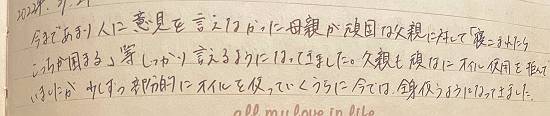 2022.9.21
今まであまり人に意見を言えなかった母親が頑固な父親に対して「寝こまれたら
こっちが困る」等しっかり言えるようになってきました。父親も頑なにオイル使用を拒んで
いましたが少しずつ部分的にオイルを使っていくうちに今では、全身使うようになってきました。
all my love in life